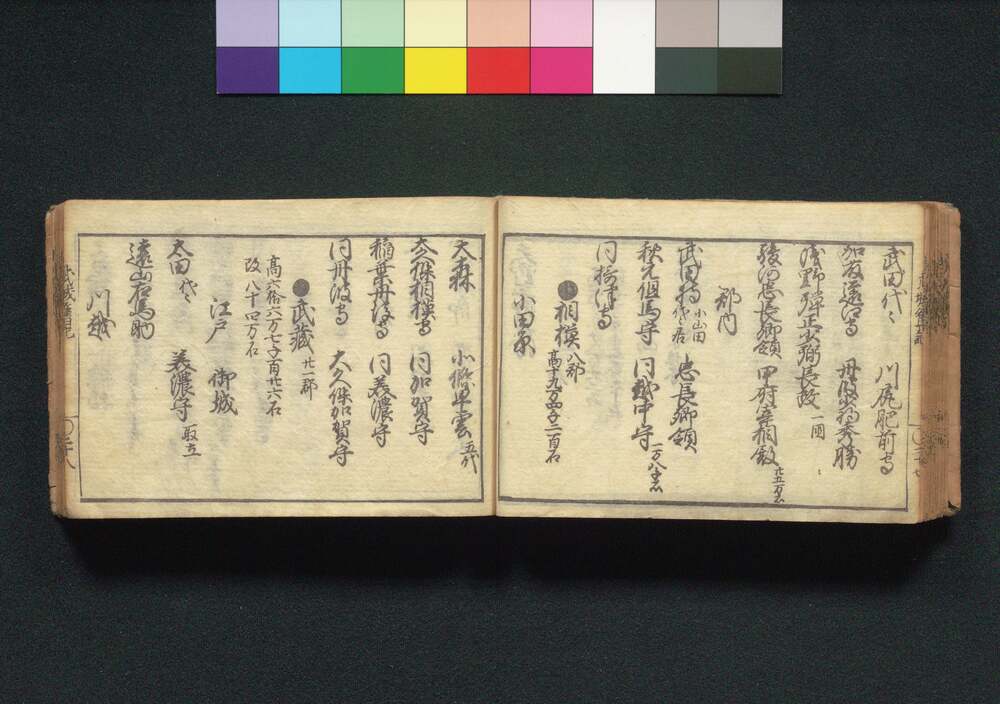 武田代々 川尻肥前守
加友遠江守 丹波少将秀勝
浅野弾正少弼長政 一圓
駿河忠長卿領 甲府宰相殿 廿五万石
郡内
武田持 小山田代々居 忠長卿領
秋元但馬守 同越中守 一万八千石
同摂津守
相模 八郡 高十九万四千二百石
小田原
大森 小北条早雲 五代
大久保相模守 同加賀守
稲葉丹後守 同美濃守
同丹波守 大久保加賀守
武蔵 廿一郡
高六拾六万七千百廿六石
改八十四万石
江戸 御城
太田代々 美濃守 取立
遠山右馬助
川越